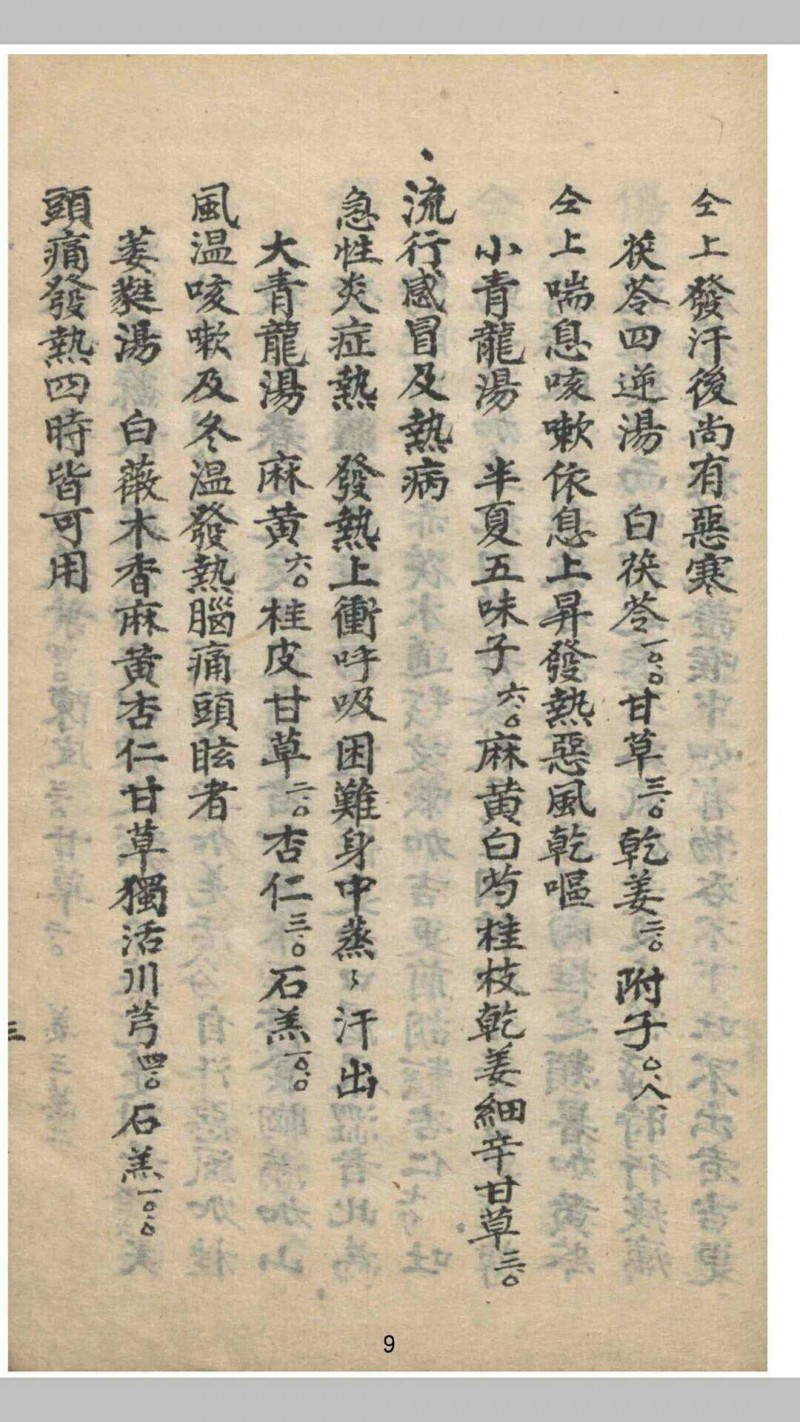 仝上發汗後尚有惡寒
茯苓四逆湯 白茯苓一〇.〇甘草三.〇乾姜二.〇附子〇.八
仝上喘息咳嗽依息上昇發熱惡風乾嘔
小青龍湯 半夏五味子六.〇麻黃白芍桂枝乾姜細辛甘草三.〇
、流行感冒及熱病
急性炎症熱 發熱上衝呼吸困難身中蒸〻汗出
大青龍湯 麻黃六.〇桂皮甘草二.〇杏仁三.〇石羔一〇.〇
風温咳嗽及冬温發熱腦痛頭眩者
萎蕤湯 白薇木香麻黃杏仁甘草獨活川芎四.〇石羔一〇.〇
頭痛發熱四時皆可用
三
9